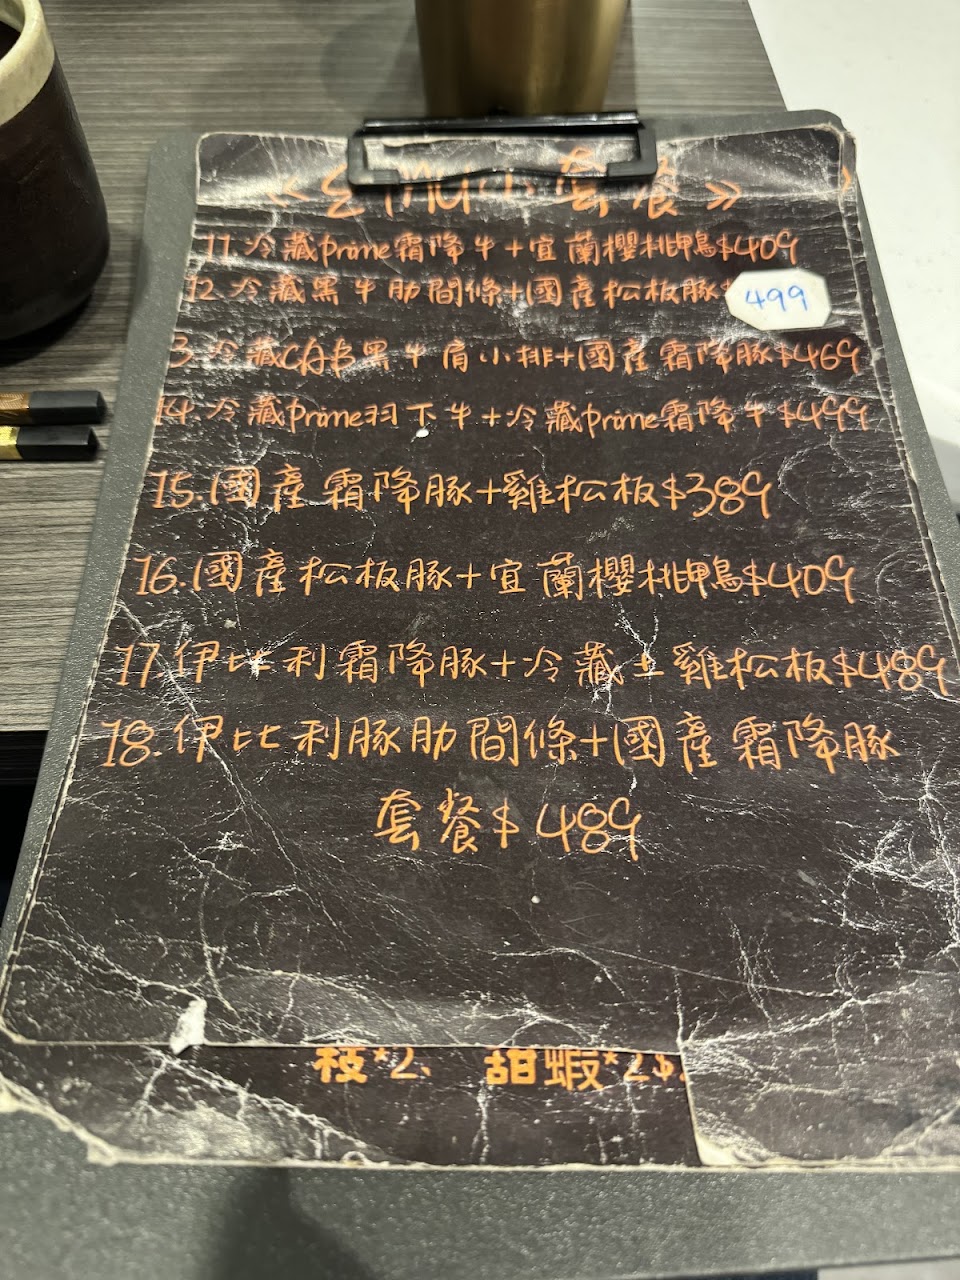 套餐》
11.冷藏prime霜降牛+宜蘭櫻桃鴨$409
12.冷藏黑牛肋間條+國產松板豚 499
3.冷藏CAB黑牛肩小排+國產霜降豚$469
14.冷藏prime羽下牛+冷藏prime霜降牛$499
15.國產霜降豚+雞松板$389
16.國產松板豚+宜蘭櫻桃鴨$409
17.伊比利霜降豚+冷藏土雞松板$489
18.伊比利豚肋間條+國產霜降豚
套餐$489
枝*2、 甜蝦*2$